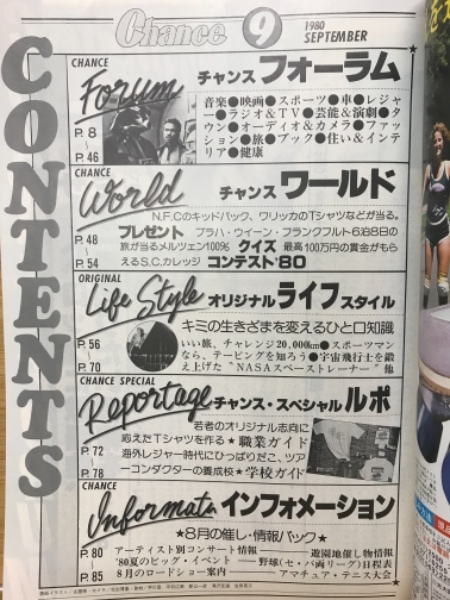 Chance 9 1980 SEPTEMBER
CONTENTS
CHANCE
Forum チャンス フォーラム
音楽●映画●スポーツ●車●レジャ
ー●ラジオ&TV●芸能&演劇●タ
ウン●オーディオ&カメラ●ファッ
ション●旅●ブック●住い&インテ
リア●健康
P.8
〜
P.46
CHANCE
World チャンス ワールド
N.F.Cのキッドバック、ワリッカのTシャツなどが当る。
プレゼント プラハ・ウイーン・フランクフルト6泊8日の
旅が当るメルツェン100% クイズ 最高100万円の賞金がもら
えるS.C.カレッジ コンテスト'80
P.48
〜
P.54
ORIGINAL
Life Style オリジナル ライフスタイル
キミの生きざまを変えるひと口知識
いい旅、チャレンジ20,000km●スポーツマン
なら、テーピングを知ろう●宇宙飛行士を鍛
え上げた"NASAスペーストレーナー"他
P.56
〜
P.70
CHANCE SPECIAL
Reportage チャンス・スペシャル ルポ
若者のオリジナル志向に
応えたTシャツを作る★職業ガイド
海外レジャー時代にひっぱりだこ、ツア
ーコンダクターの養成校★学校ガイド
P.72
〜
P.78
CHANCE
Informatn インフォメーション
★8月の催し・情報パック★
アーティスト別コンサート情報――遊園地催し物情報
'80夏のビッグ・イベント――野球(セ・パ両リーグ)日程表
8月のロードショー案内――アマチュア・テニス大会
P.80
〜
P.85